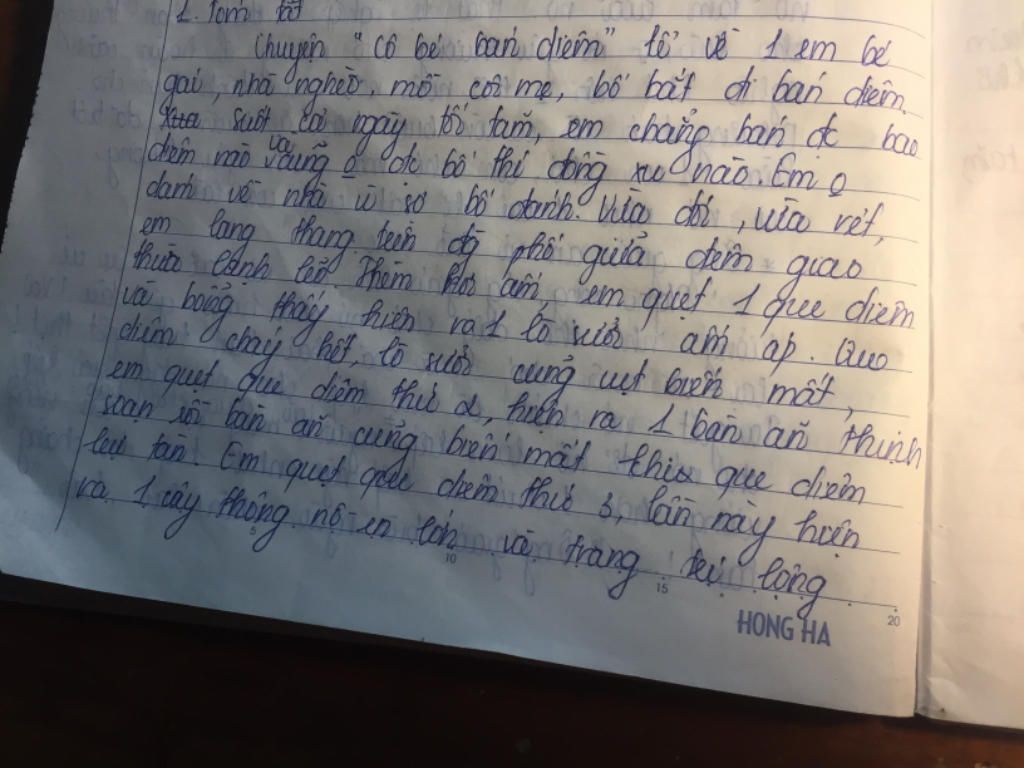 1. Tóm tắt
Chuyện "Cô bé bán diêm" kể về 1 em bé
gái, nhà nghèo, mồ côi mẹ, bố bắt đi bán diêm
suốt cả ngày tối tăm, em chẳng bán đc bao
diêm nào và cũng o đc bố thí đồng xu nào. Em o
dám về nhà vì sợ bố đánh. Vừa đói, vừa rét,
em lang thang trên đg phố giữa đêm giao
thừa lạnh lẽo. Thèm hơi ấm, em quẹt 1 que diêm
và bỗng thấy hiện ra 1 lò sưởi ấm áp. Que
diêm cháy hết, lò sưởi cũng vụt biến mất,
em quẹt que diêm thứ 2, hiện ra 1 bàn ăn thịnh
soạn rồi bàn ăn cũng biến mất khi que diêm
lụi tàn. Em quẹt que diêm thứ 3, lần này hiện
ra 1 cây thông nô en lớn và trang trí lộng
10
15
20
HONG HA